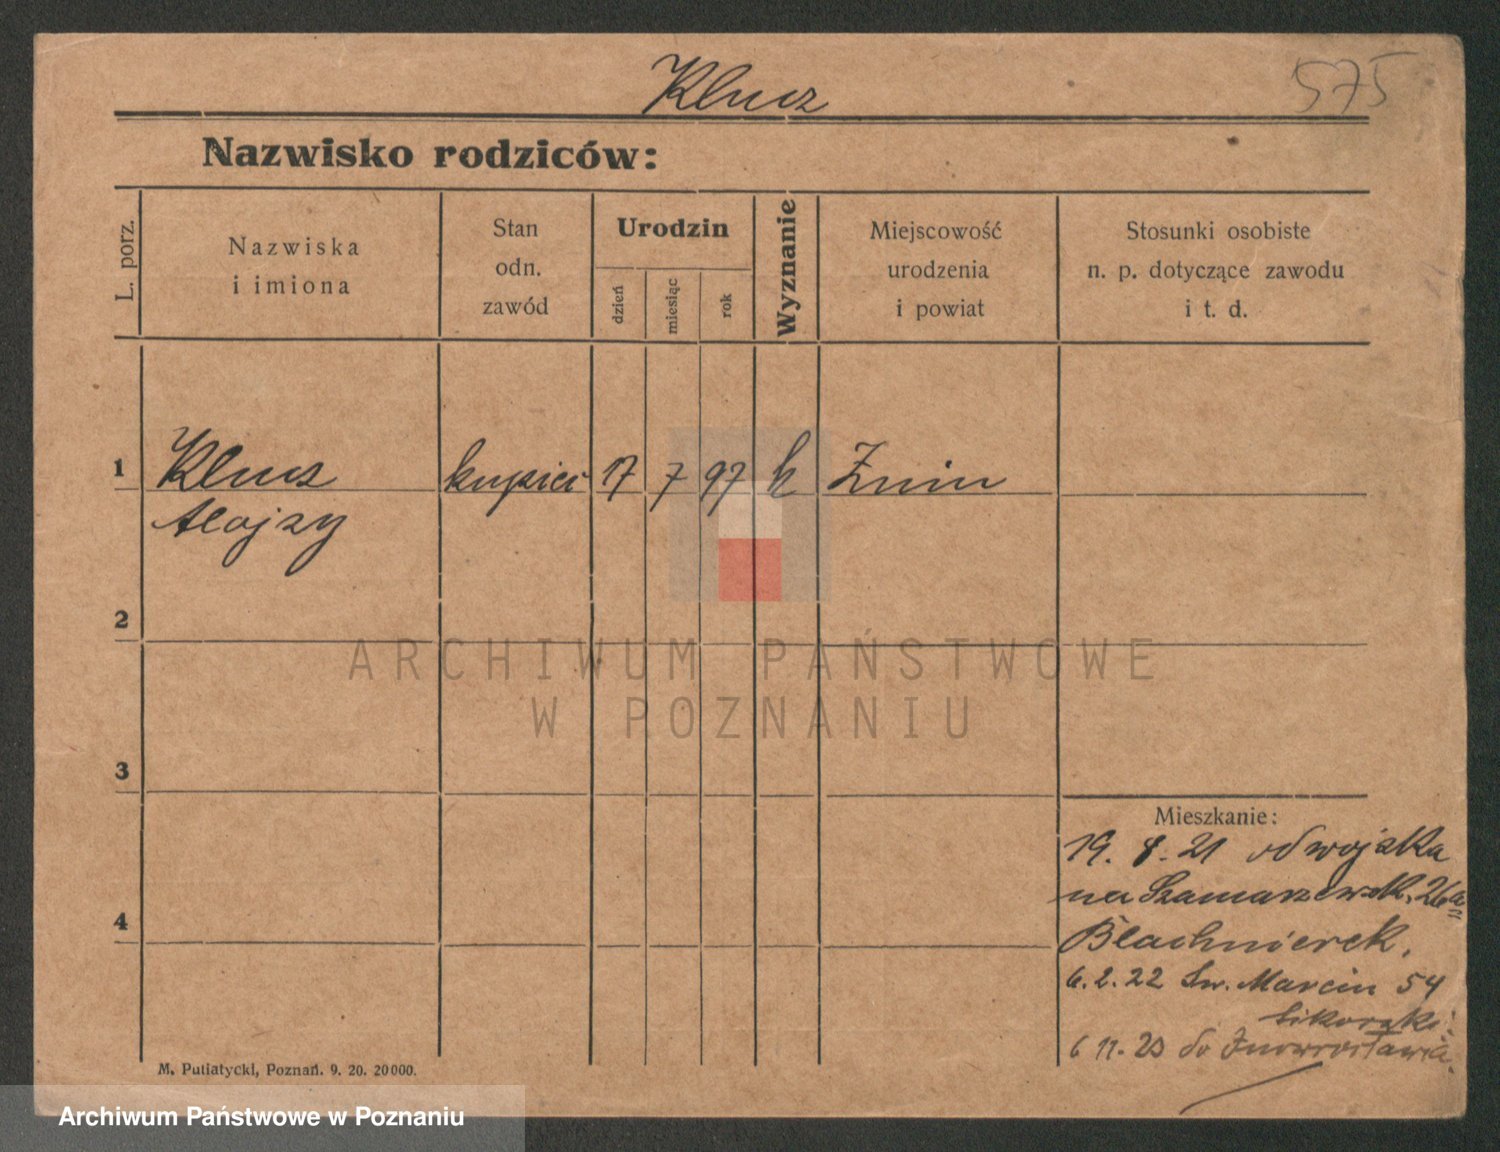 Klucz
575
Nazwisko rodziców:
L. porz.
Nazwiska
i imiona
Stan
odn.
zawód
Urodzin
dzień
miesiąc
rok
Wyznanie
Miejscowość
urodzenia
i powiat
Stosunki osobiste
n. p. dotyczące zawodu
i t. d.
1 Klucz kupiec 17 7 97 k Żnin
Alojzy
2
3
4
ARCHIWUM PAŃSTWOWE
W POZNANIU
Mieszkanie:
19. 8. 21 od wojska
na Szamarzewsk. 26a
Blachnierek.
6. 2. 22 Św. Marcin 54
Sikorski.
6 11. 23 do Inowrocławia.
M. Putiatycki, Poznań. 9. 20. 20000.
Archiwum Państwowe w Poznaniu